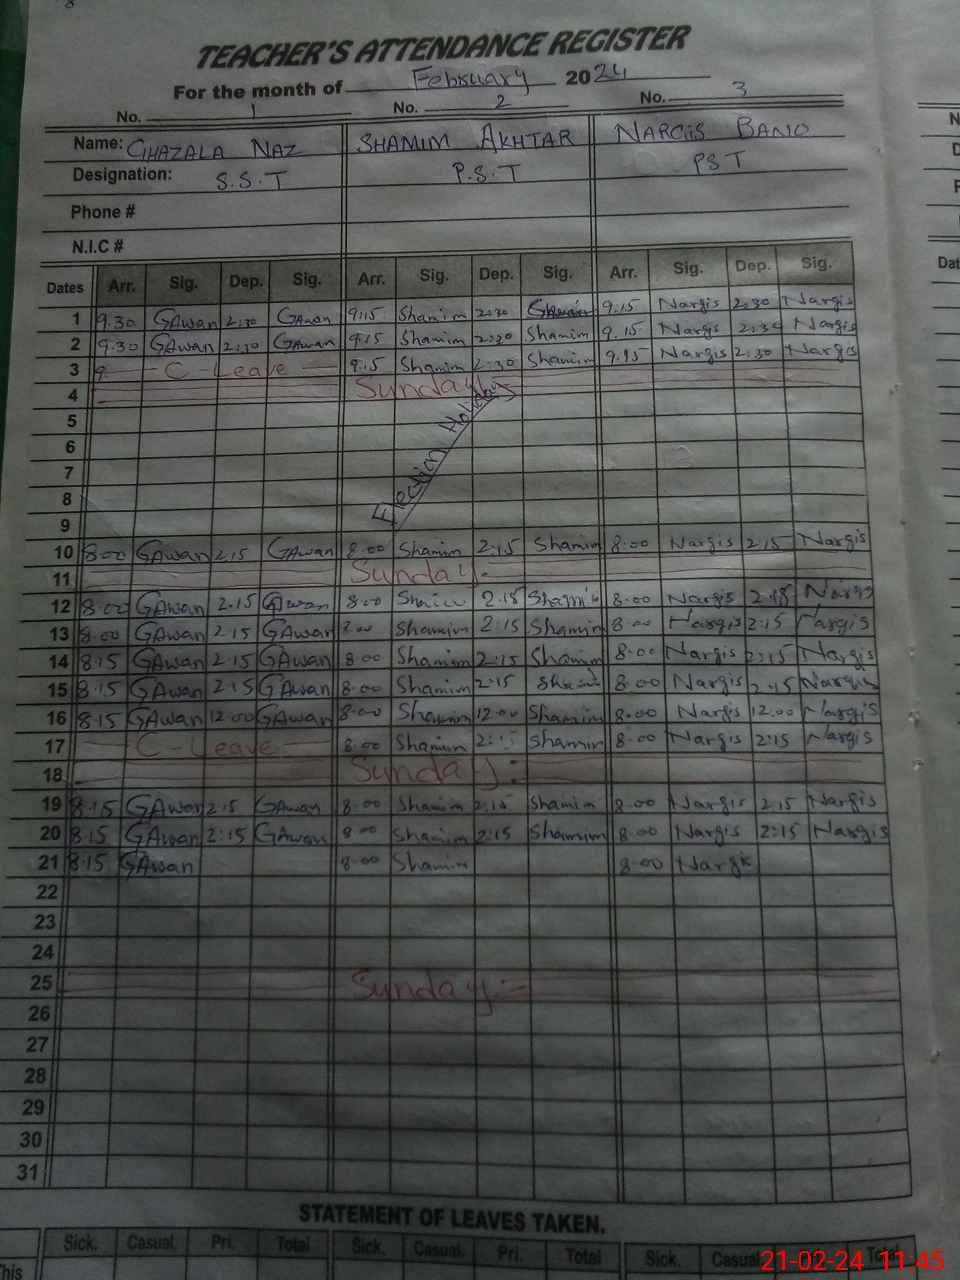 TEACHER'S ATTENDANCE REGISTER
For the month of February 2024
No. 1 No. 2 No. 3
Name: GHAZALA NAZ SHAMIM AKHTAR NARGIS BANO
Designation: S.S.T P.S.T PST
Phone #
N.I.C #
Dates Arr. Sig. Dep. Sig. Arr. Sig. Dep. Sig. Arr. Sig. Dep. Sig.
1 9.30 GAwan 2:30 GAwan 9:15 Shamim 2:30 Shamim 9.15 Nargis 2:30 Nargis
2 9.30 GAwan 2:30 GAwan 9:15 Shamim 2:30 Shamim 9.15 Nargis 2:30 Nargis
3 9 C-Leave 9:15 Shamim 2:30 Shamim 9.15 Nargis 2:30 Nargis
4 Sunday
5
6
7
8
9
Election Holidays
10 8:00 GAwan 2.15 GAwan 8.00 Shamim 2:15 Shamim 8.00 Nargis 2:15 Nargis
11 Sunday:-
12 8.00 GAwan 2.15 GAwan 8.00 2.15 8.00 Nargis Nargis
13 8.00 GAwan 2.15 GAwan Shamim 2:15 Shamim 8.00 Nargis 2:15 Nargis
14 8.15 GAwan 2.15 GAwan 8.00 Shamim 2:15 Shamim 8.00 Nargis 2:15 Nargis
15 8.15 GAwan 2.15 GAwan 8.00 Shamim 2:15 8.00 Nargis 2.15 Nargis
16 8.15 GAwan 12.00 GAwan 8.00 Shamim 12.00 Shamim 8.00 Nargis 12.00 Nargis
17 C-Leave 8.00 Shamim 2:15 Shamim 8.00 Nargis 2:15 Nargis
18 Sunday:
19 8.15 GAwan 2.15 GAwan 8.00 Shamim 2.15 Shamim 8.00 Nargis 2.15 Nargis
20 8.15 GAwan 2:15 GAwan 8.00 Shamim 2:15 Shamim 8.00 Nargis 2:15 Nargis
21 8.15 GAwan 8.00 Shamim 8.00 Nargis
22
23
24
25 Sunday:-
26
27
28
29
30
31
STATEMENT OF LEAVES TAKEN.
Sick. Casual. Pri. Total Sick. Casual. Pri. Total Sick. Casual Total
This
21-02-24 11:45